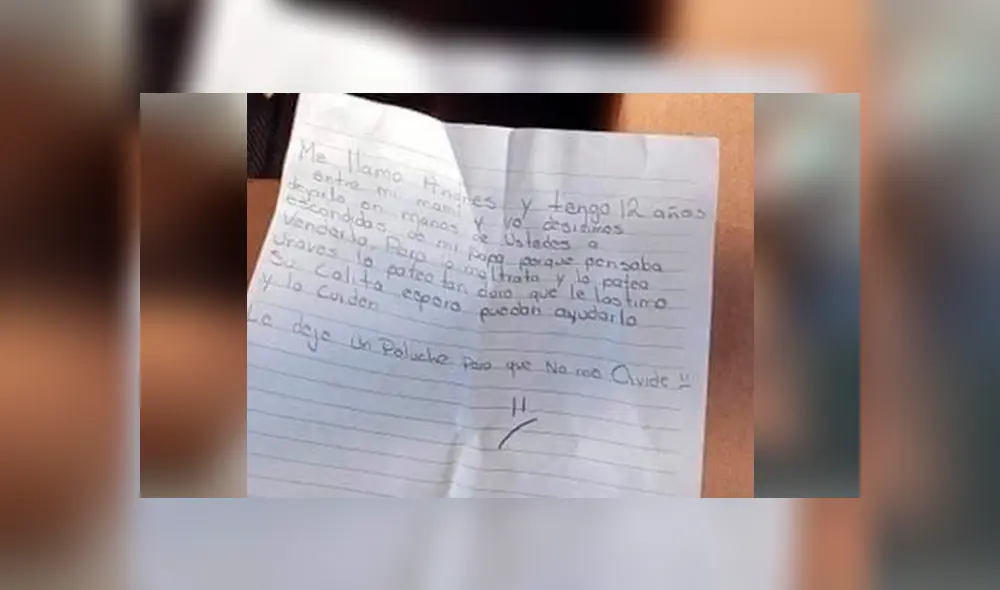 Me llamo Andres y tengo 12 años
entre mi mami y yo desidimos
dejarlo en manos de ustedes a
escondidas de mi papa porque pensaba
venderlo. Pero lo maltrata y lo patea
unaves lo pateo tan duro que le lastimo
su colita espero puedan ayudarlo
y lo cuiden
Le deje un Peluche para que No me Olvide !!